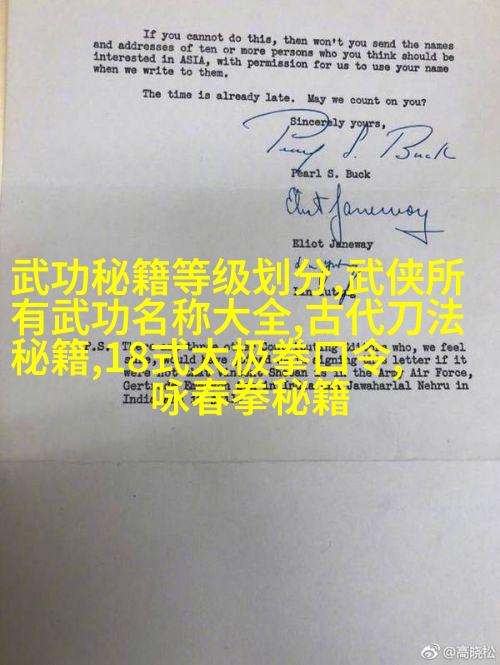 If you cannot do this, then won't you send the names
and addresses of ten or more persons who you think should be
interested in ASIA, with permission for us to use your name
when we write to them.
The time is already late. May we count on you?
Sincerely yours,
Pearl S. Buck
Pearl S. Buck
Eliot Janeway
Eliot Janeway
武功秘籍等级划分,武侠所
有武功名称大全,古代刀法
秘籍,18式太极拳口令,
咏春拳秘籍
P.S. who, we feel
signing letter if it
were not is in the Army Air Force,
Jawaharlal Nehru in
@高晓松